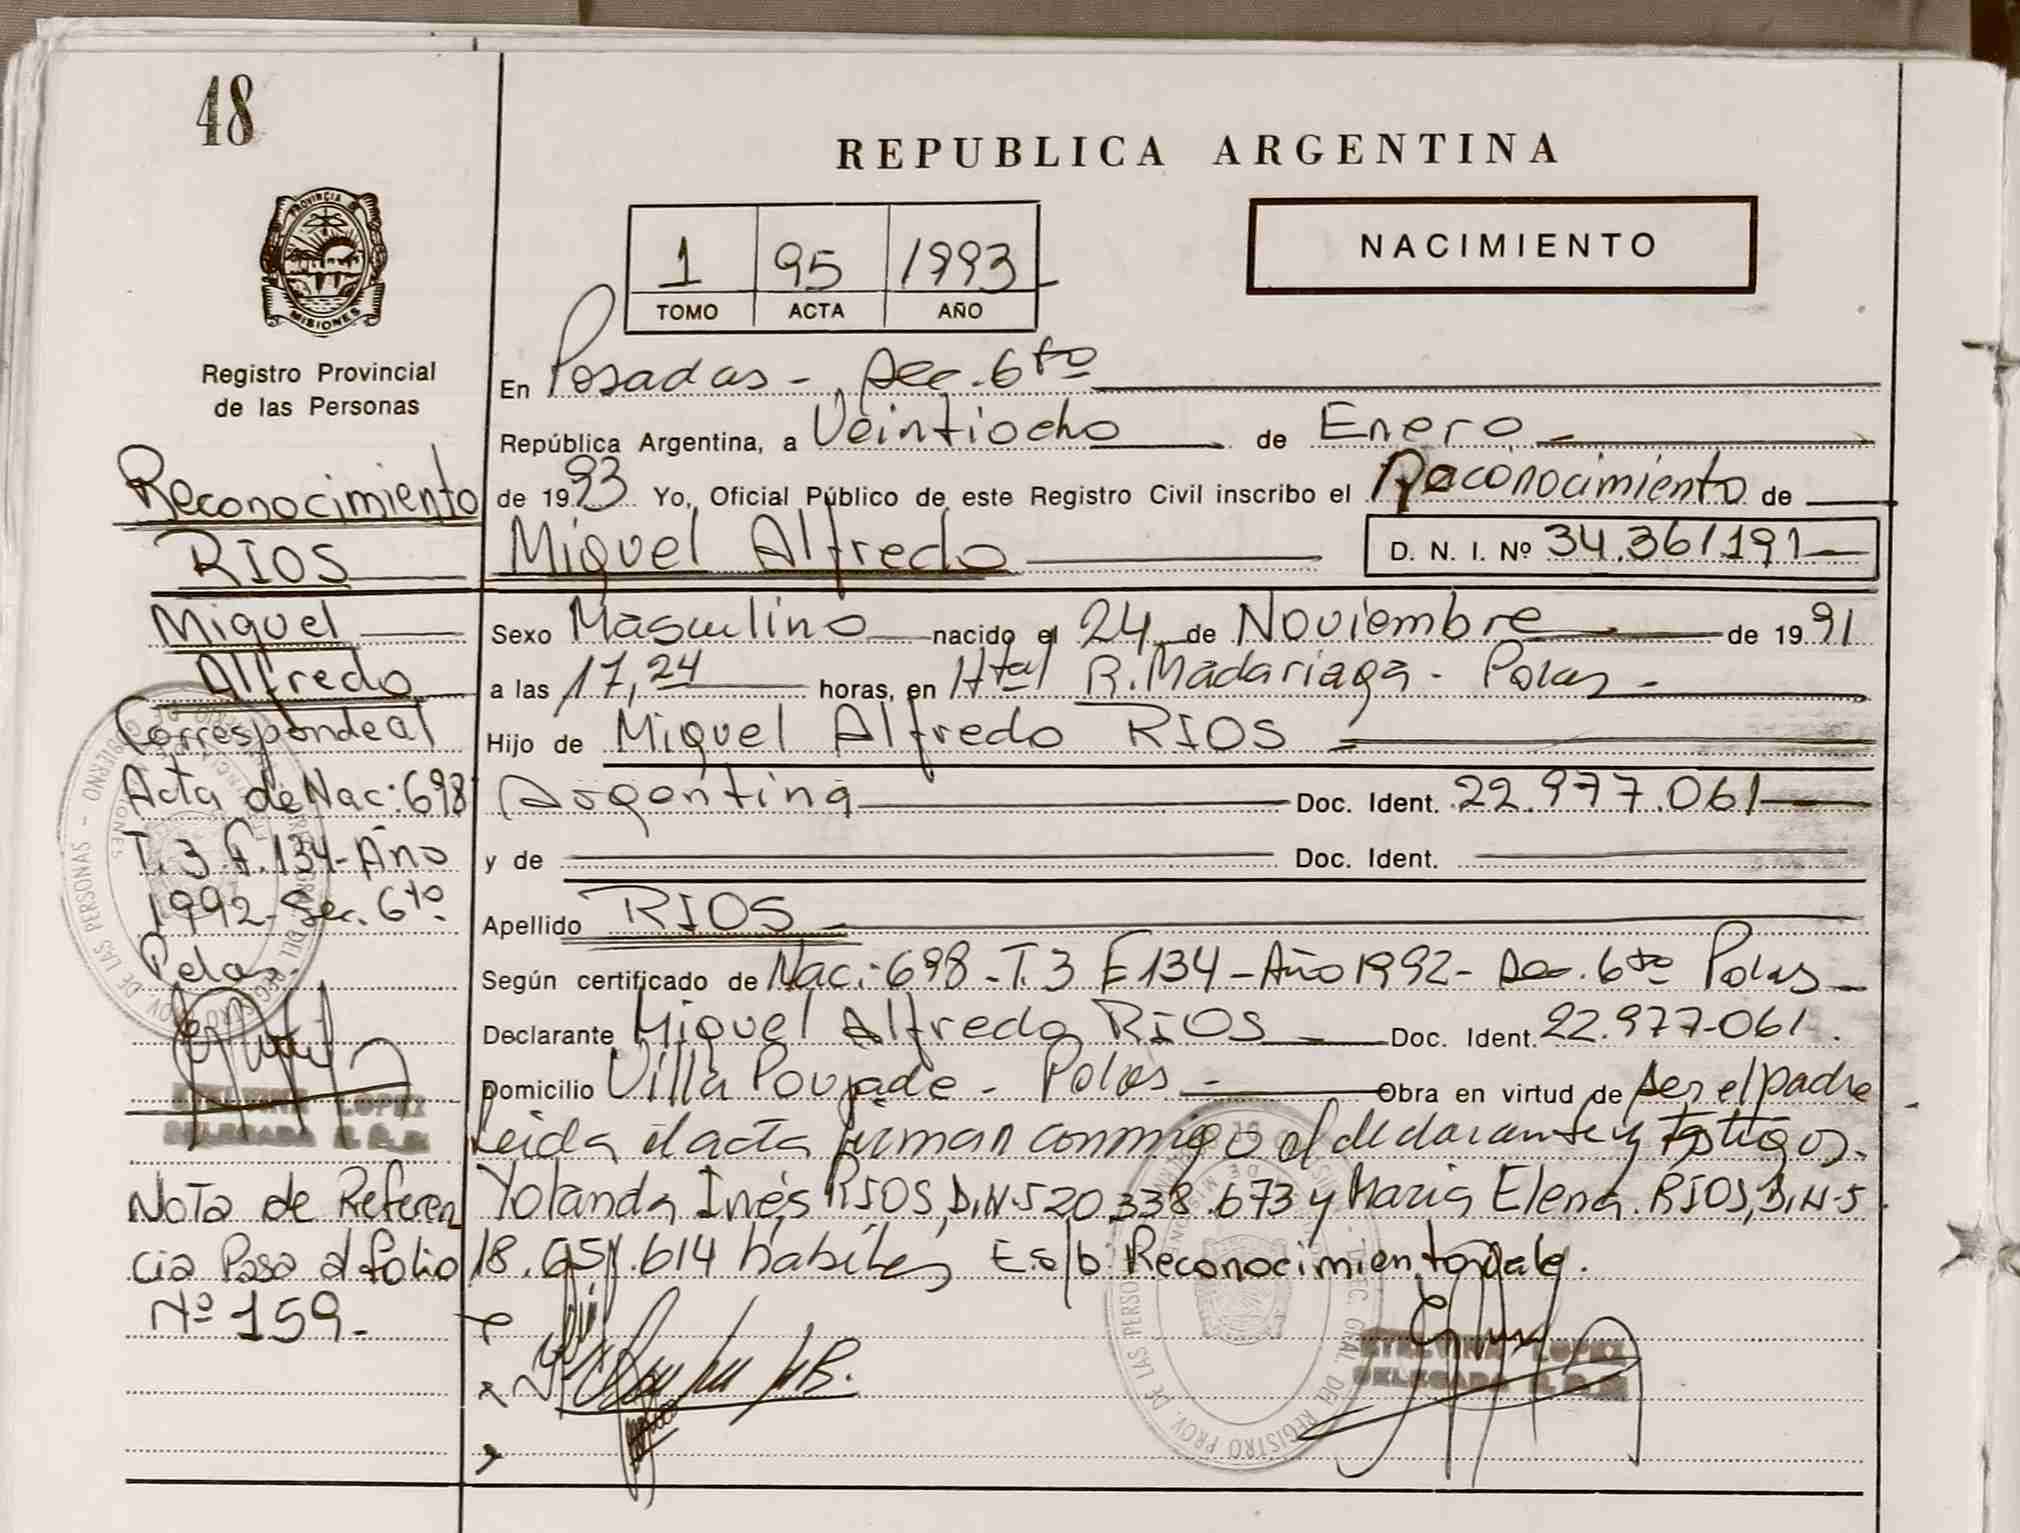 48
REPUBLICA ARGENTINA
NACIMIENTO
1 95 1993
TOMO ACTA AÑO
PROVINCIA DE
MISIONES
Registro Provincial
de las Personas
En Posadas - Sec. 6to
República Argentina, a Veintiocho de Enero
de 1993 Yo, Oficial Público de este Registro Civil inscribo el Reconocimiento de
Miguel Alfredo D. N. I. Nº 34.361191
Sexo Masculino nacido el 24 de Noviembre de 1991
a las 17,24 horas, en Htal R. Madariaga - Pdas -
Hijo de Miguel Alfredo RIOS
Argentina Doc. Ident. 22.977.061
y de Doc. Ident.
Apellido RIOS
Según certificado de Nac: 698 - T. 3 F 134 - Año 1992 - Sec. 6to Pdas
Declarante Miguel Alfredo RIOS Doc. Ident. 22.977.061
Domicilio Villa Poujade - Pdas - Obra en virtud de ser el padre
Leida el acta firman conmigo el declarante y testigos
Yolanda Inés RIOS, D.N.I 20.338.673 y Maria Elena RIOS, D.N.I
18. .614 habiles E.s/b: Reconocimiento Vale.
ETELVINA LOPEZ
DELEGADA R.P.P.
Reconocimiento
RIOS
Miguel
Alfredo
Corresponde al
Acta de Nac: 698
T. 3 F. 134 - Año
1992 - Sec. 6to
Pdas.
ETELVINA LOPEZ
DELEGADA R.P.P.
Nota de Referen
cia Pasa al folio
Nº 159.-